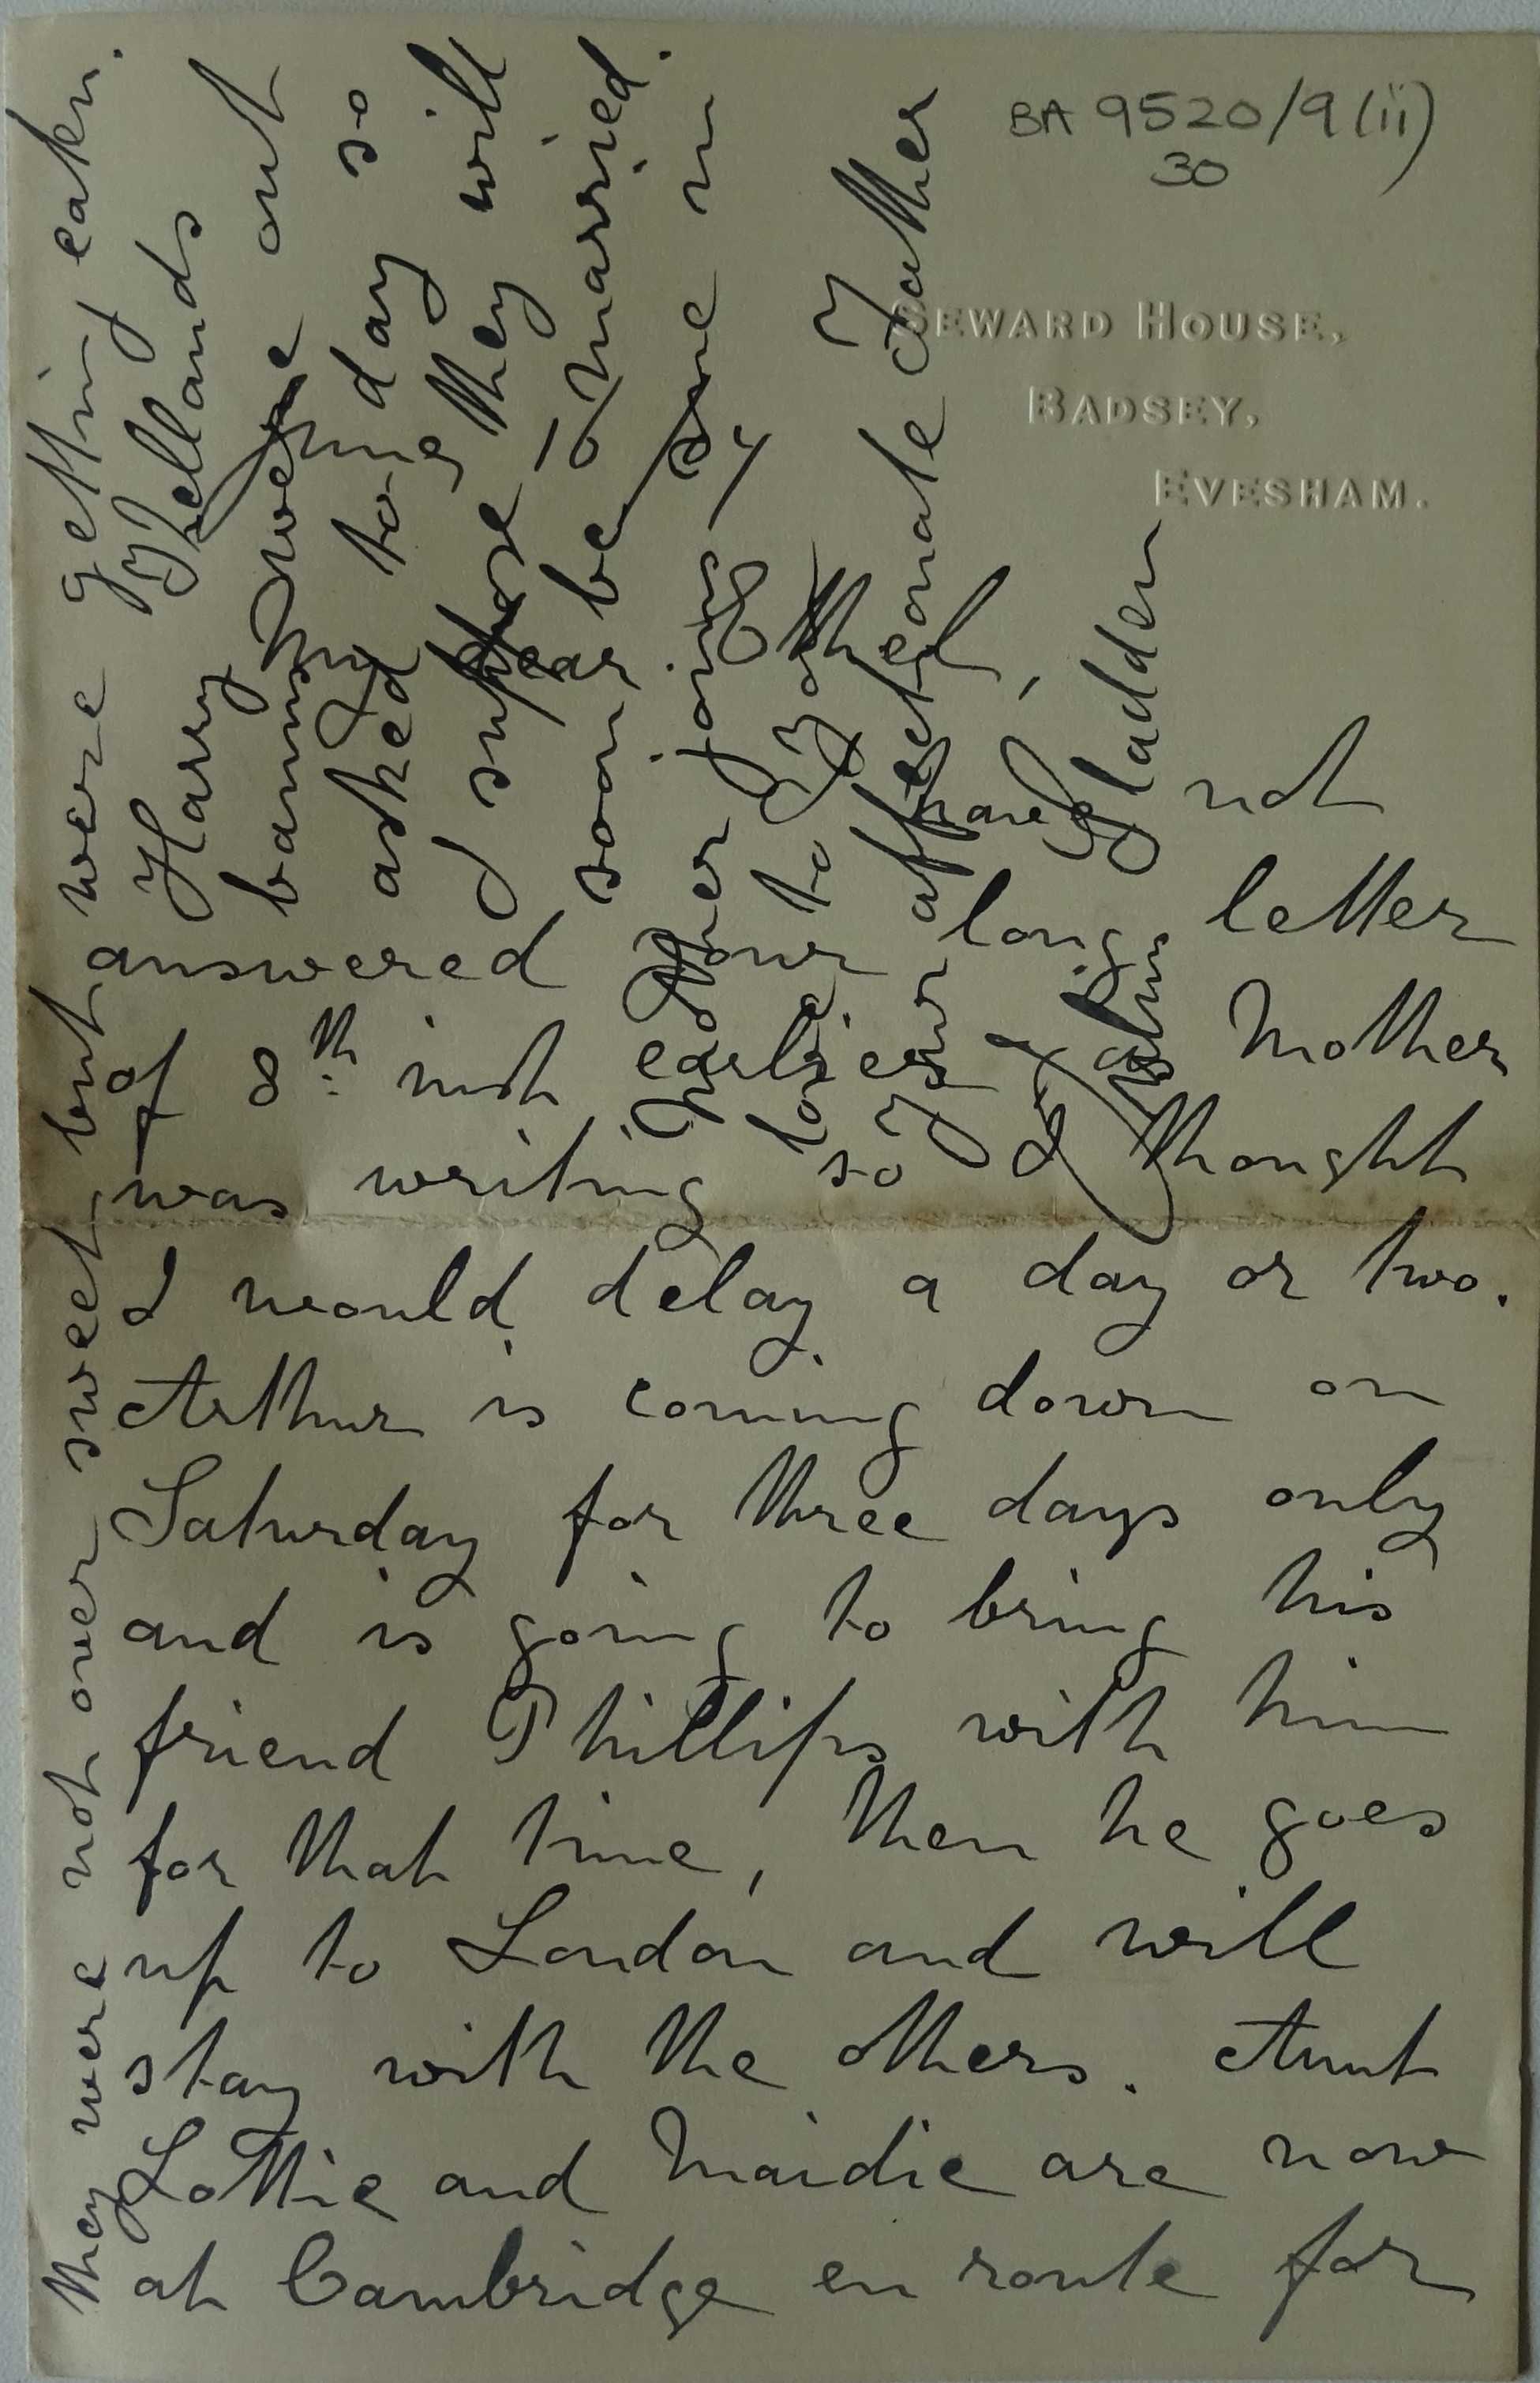 BA 9520/9(ii)
30
SEWARD HOUSE,
BADSEY,
EVESHAM.
My dear Ethel,
I have not
answered your long letter
of 8th inst earlier as Mother
was writing so I thought
I would delay a day or two.
Arthur is coming down on
Saturday for three days only
and is going to bring his
friend Phillips with him
for that time, then he goes
up to London and will
stay with the others. Aunt
Lottie and Maidie are now
at Cambridge en route for
they were not over sweet, but were getting eaten.
Harry
banns were out
asked to day so
I suppose they will
soon be married.
Mother joins me in
love to
Your affectionate Father
Julius Sladden